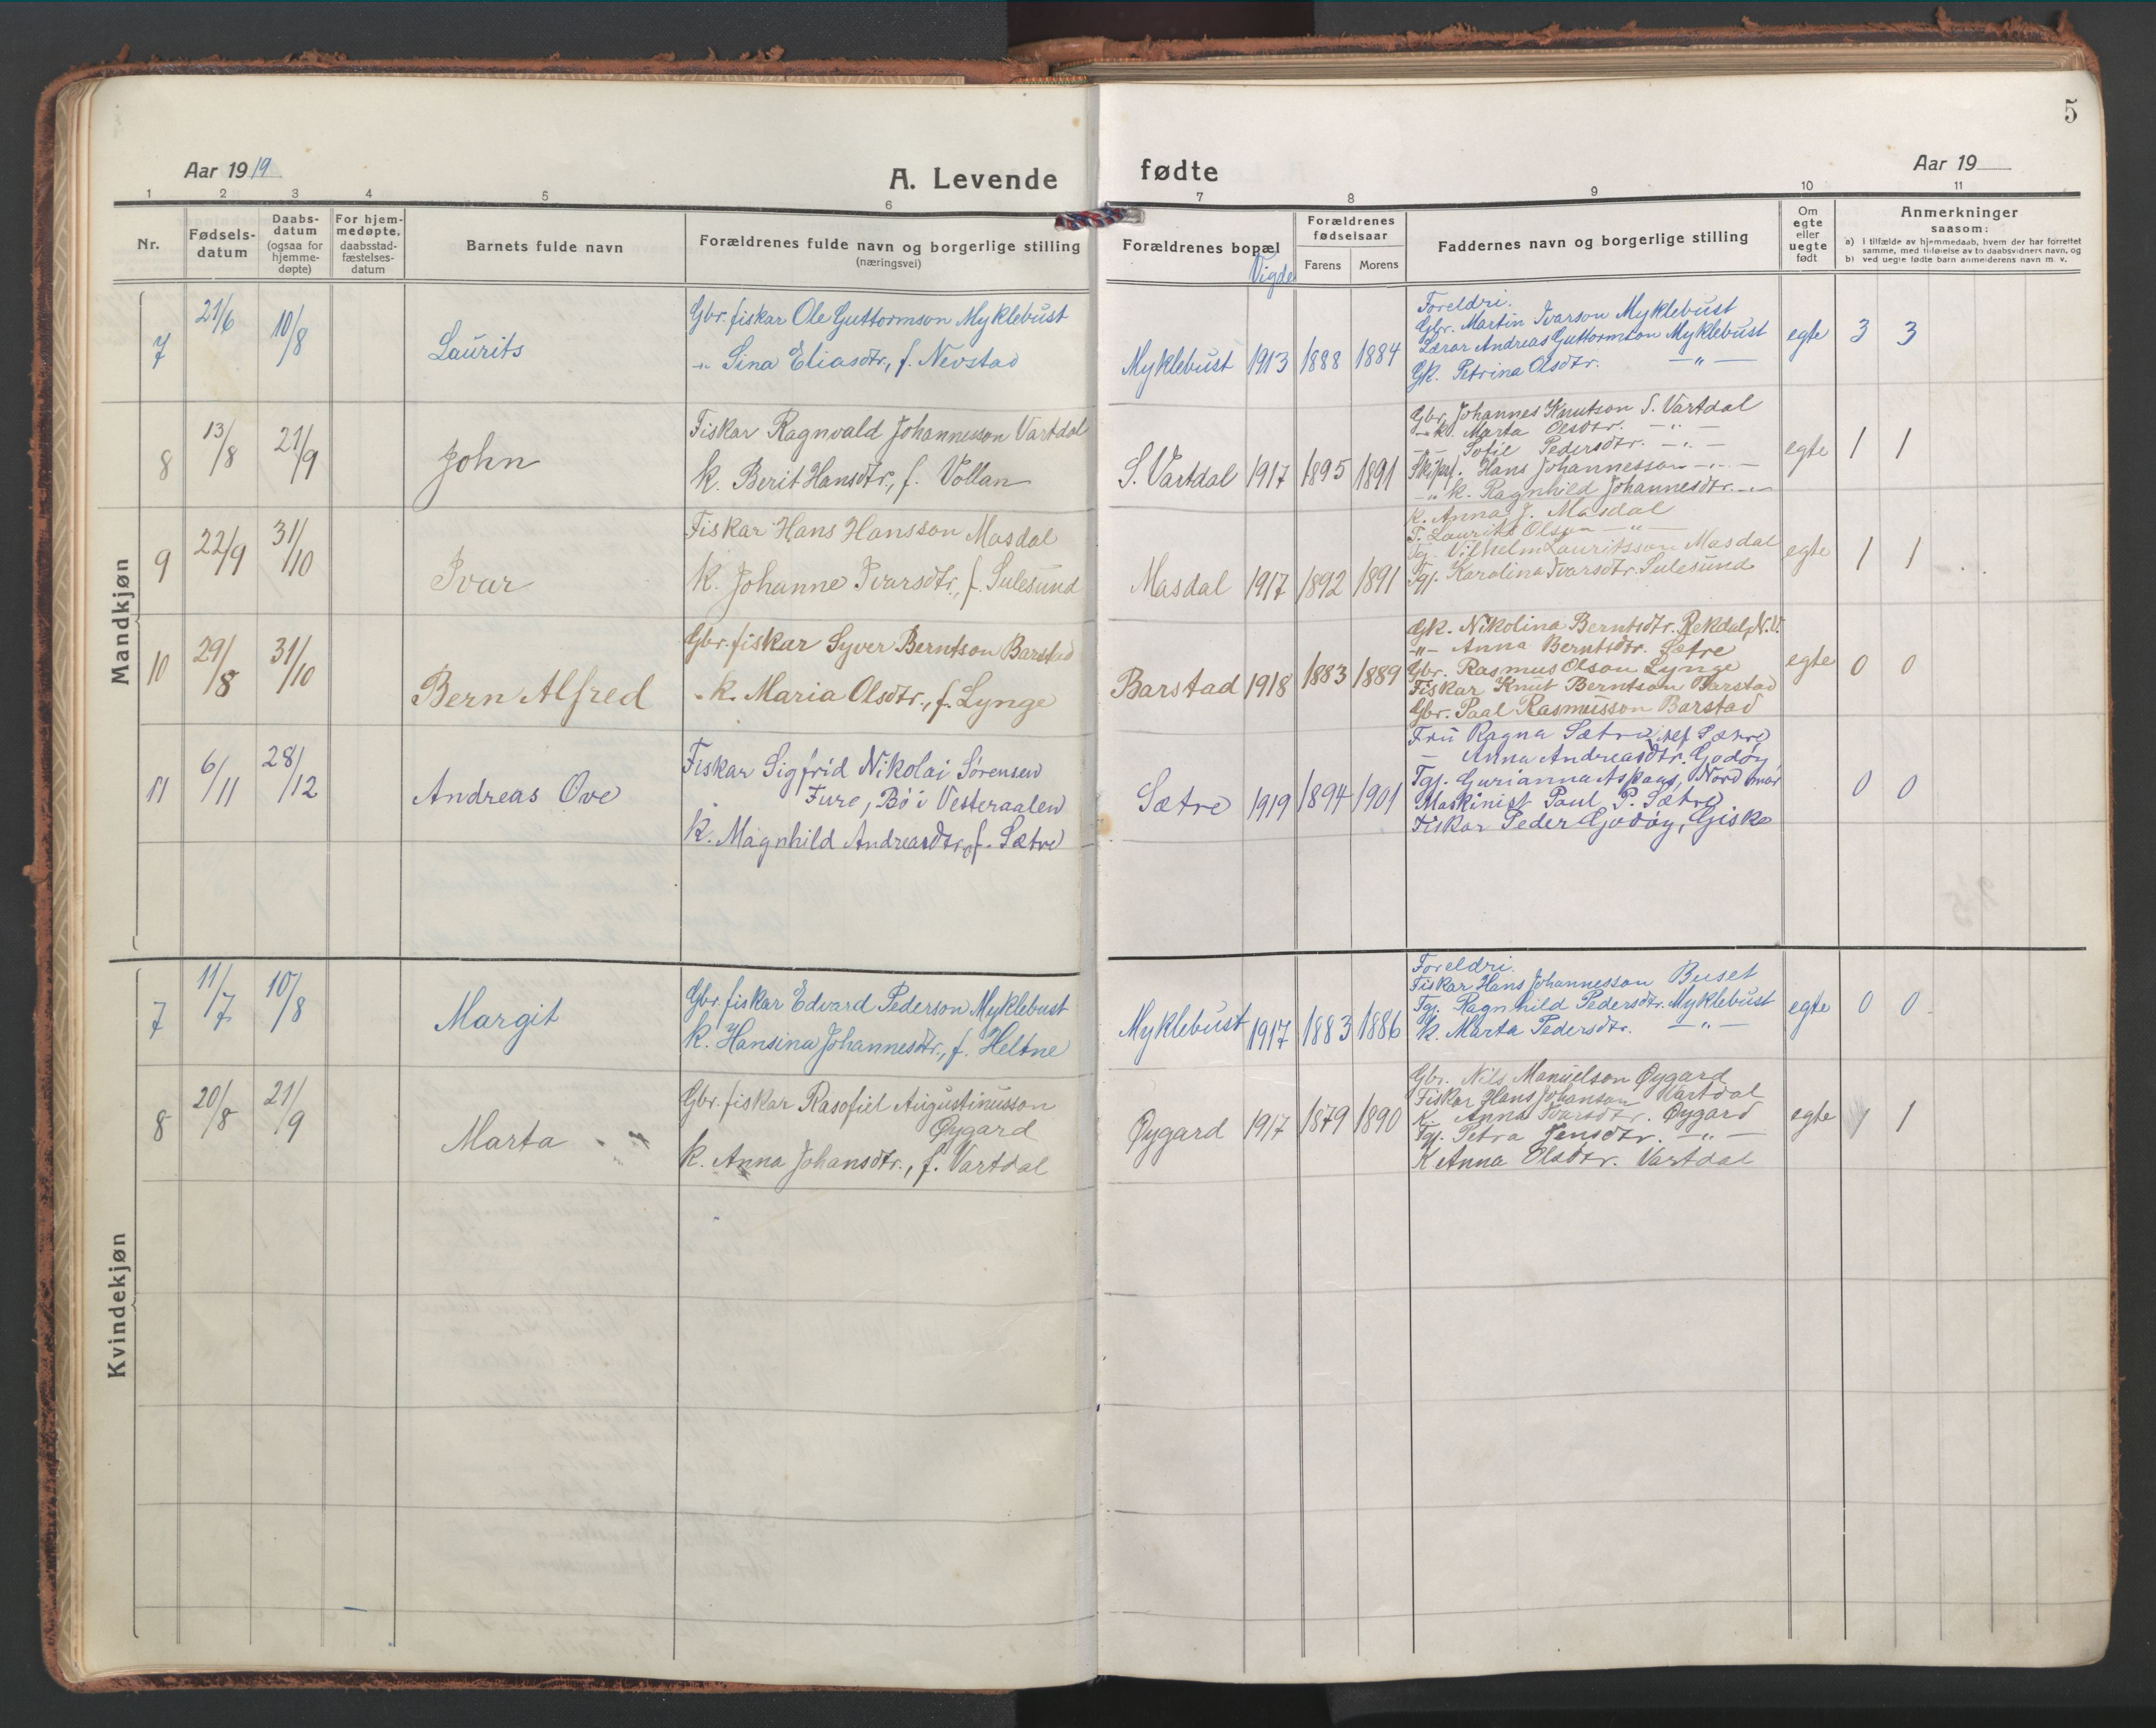 5
Aar 1919
A. Levende fødte
Aar 19
1 2 3 4 5 6 7 8 9 10 11
Nr.
Fødsels-
datum
Daabs-
datum
(ogsaa for
hjemme-
døpte)
For hjem-
medøpte,
daabsstad-
fæstelses-
datum
Barnets fulde navn
Forældrenes fulde navn og borgerlige stilling
(næringsvei)
Forældrenes bopæl
Vigde
Forældrenes
fødselsaar
Farens Morens
Faddernes navn og borgerlige stilling
Om
egte
eller
uegte
født
Anmerkninger
saasom:
a) i tilfælde av hjemmedaab, hvem der har forrettet
samme, med tilføielse av to daabsvidners navn, og
b) ved uegte fødte barn anmelderens navn m. v.
Mandkjøn
7 21/6 10/8 Laurits
Gbr. fiskar Ole Guttormson Myklebust
-"- Sina Eliasdtr., f. Nevstad
Myklebust 1913 1888 1884
Foreldri.
Gbr. Martin Ivarson Myklebust
Lærar Andreas Guttormson Myklebust
Gk. Petrina Olsdtr. —"—
egte 3 3
8 13/8 21/9 John
Fiskar Ragnvald Johannesson Vartdal
K. Berit Hansdtr., f. Vollan
S. Vartdal 1917 1895 1891
Gbr. Johannes Knutson S. Vartdal
-"- K. Marta Olsdtr. —"—
-"- Sofie Pedersdtr. —"—
Skipsf. Hans Johannesson —"—
-"- K. Ragnhild Johannesdtr. —"—
egte 1 1
9 22/9 31/10 Ivar
Fiskar Hans Hansson Masdal
K. Johanne Ivarsdtr., f. Sulesund
Masdal 1917 1892 1891
K. Anna J. Masdal
F. Laurits Olson —"—
Tg. Vilhelm Lauritsson Masdal
Tgj. Karolina Ivarsdtr. Sulesund
egte 1 1
10 29/8 31/10 Bern Alfred
Gbr. fiskar Syver Berntson Barstad
-"- K. Maria Olsdtr., f. Lynge
Barstad 1918 1883 1889
Gk. Nikolina Berntsdtr. Rekdal, N.V.
-"- Anna Berntsdtr. Sætre
Gbr. Rasmus Olson Lynge
Fiskar Knut Berntson Barstad
Gbr. Paal Rasmusson Barstad
egte 0 0
11 6/11 28/12 Andreas Ove
Fiskar Sigfrid Nikolai Sørensen
Fure, Bø i Vesteraalen
K. Magnhild Andreasdtr., f. Sætre
Sætre 1919 1894 1901
Fru Ragna Sætre, Sætre
— Anna Andreasdtr. Godøy
Tgj. Gurianna Aspaas, Nordmør
Maskinist Paul P. Sætre
Fiskar Peder Godøy, Giske
0 0
Kvindekjøn
7 11/7 10/8 Margit
Gbr. fiskar Edvard Pederson Myklebust
K. Hansina Johannesdtr., f. Heltne
Myklebust 1917 1883 1886
Foreldri.
Fiskar Hans Johannesson Buset
Tgj. Ragnhild Pedersdtr. Myklebust
K. Marta Pedersdtr. —"—
egte 0 0
8 20/8 21/9 Marta
Gbr. fiskar Rasofiel Augustinusson
Øygard
K. Anna Johansdtr., f. Vartdal
Øygard 1917 1879 1890
Gbr. Nils Manuelson Øygard
Fiskar Hans Johanson Vartdal
K. Anna Ivarsdtr. Øygard
Tgj. Petra Jensdtr. —"—
K Anna Olsdtr. Vartdal
egte 1 1